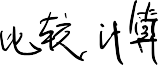 比较计算